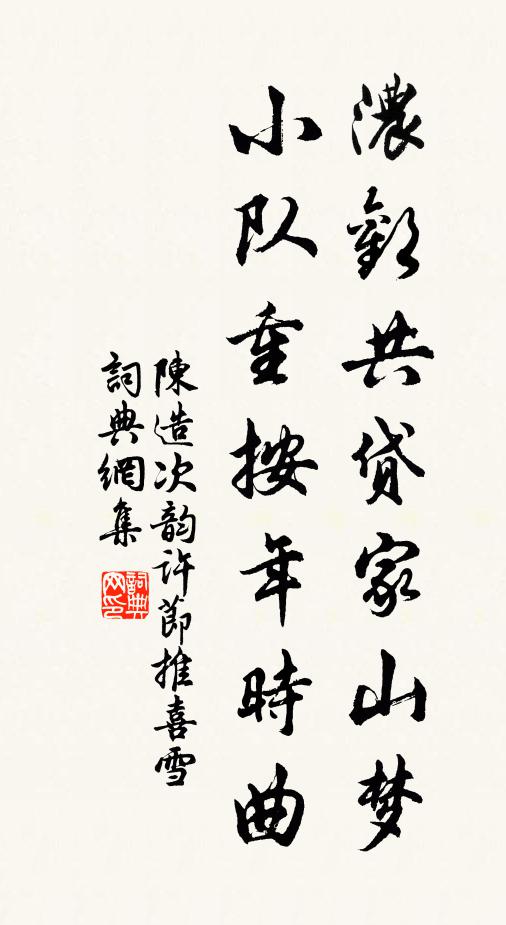 濃歡共貸家山梦
小队重按年時曲
陳造次韵许節推喜雪
詞典網集
詞典网印